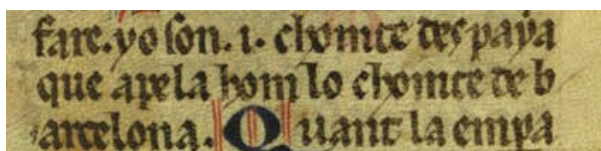 fare. yo son .i. chomte despaya
que apela hom lo chomte de b
arcelona. Quant la empa